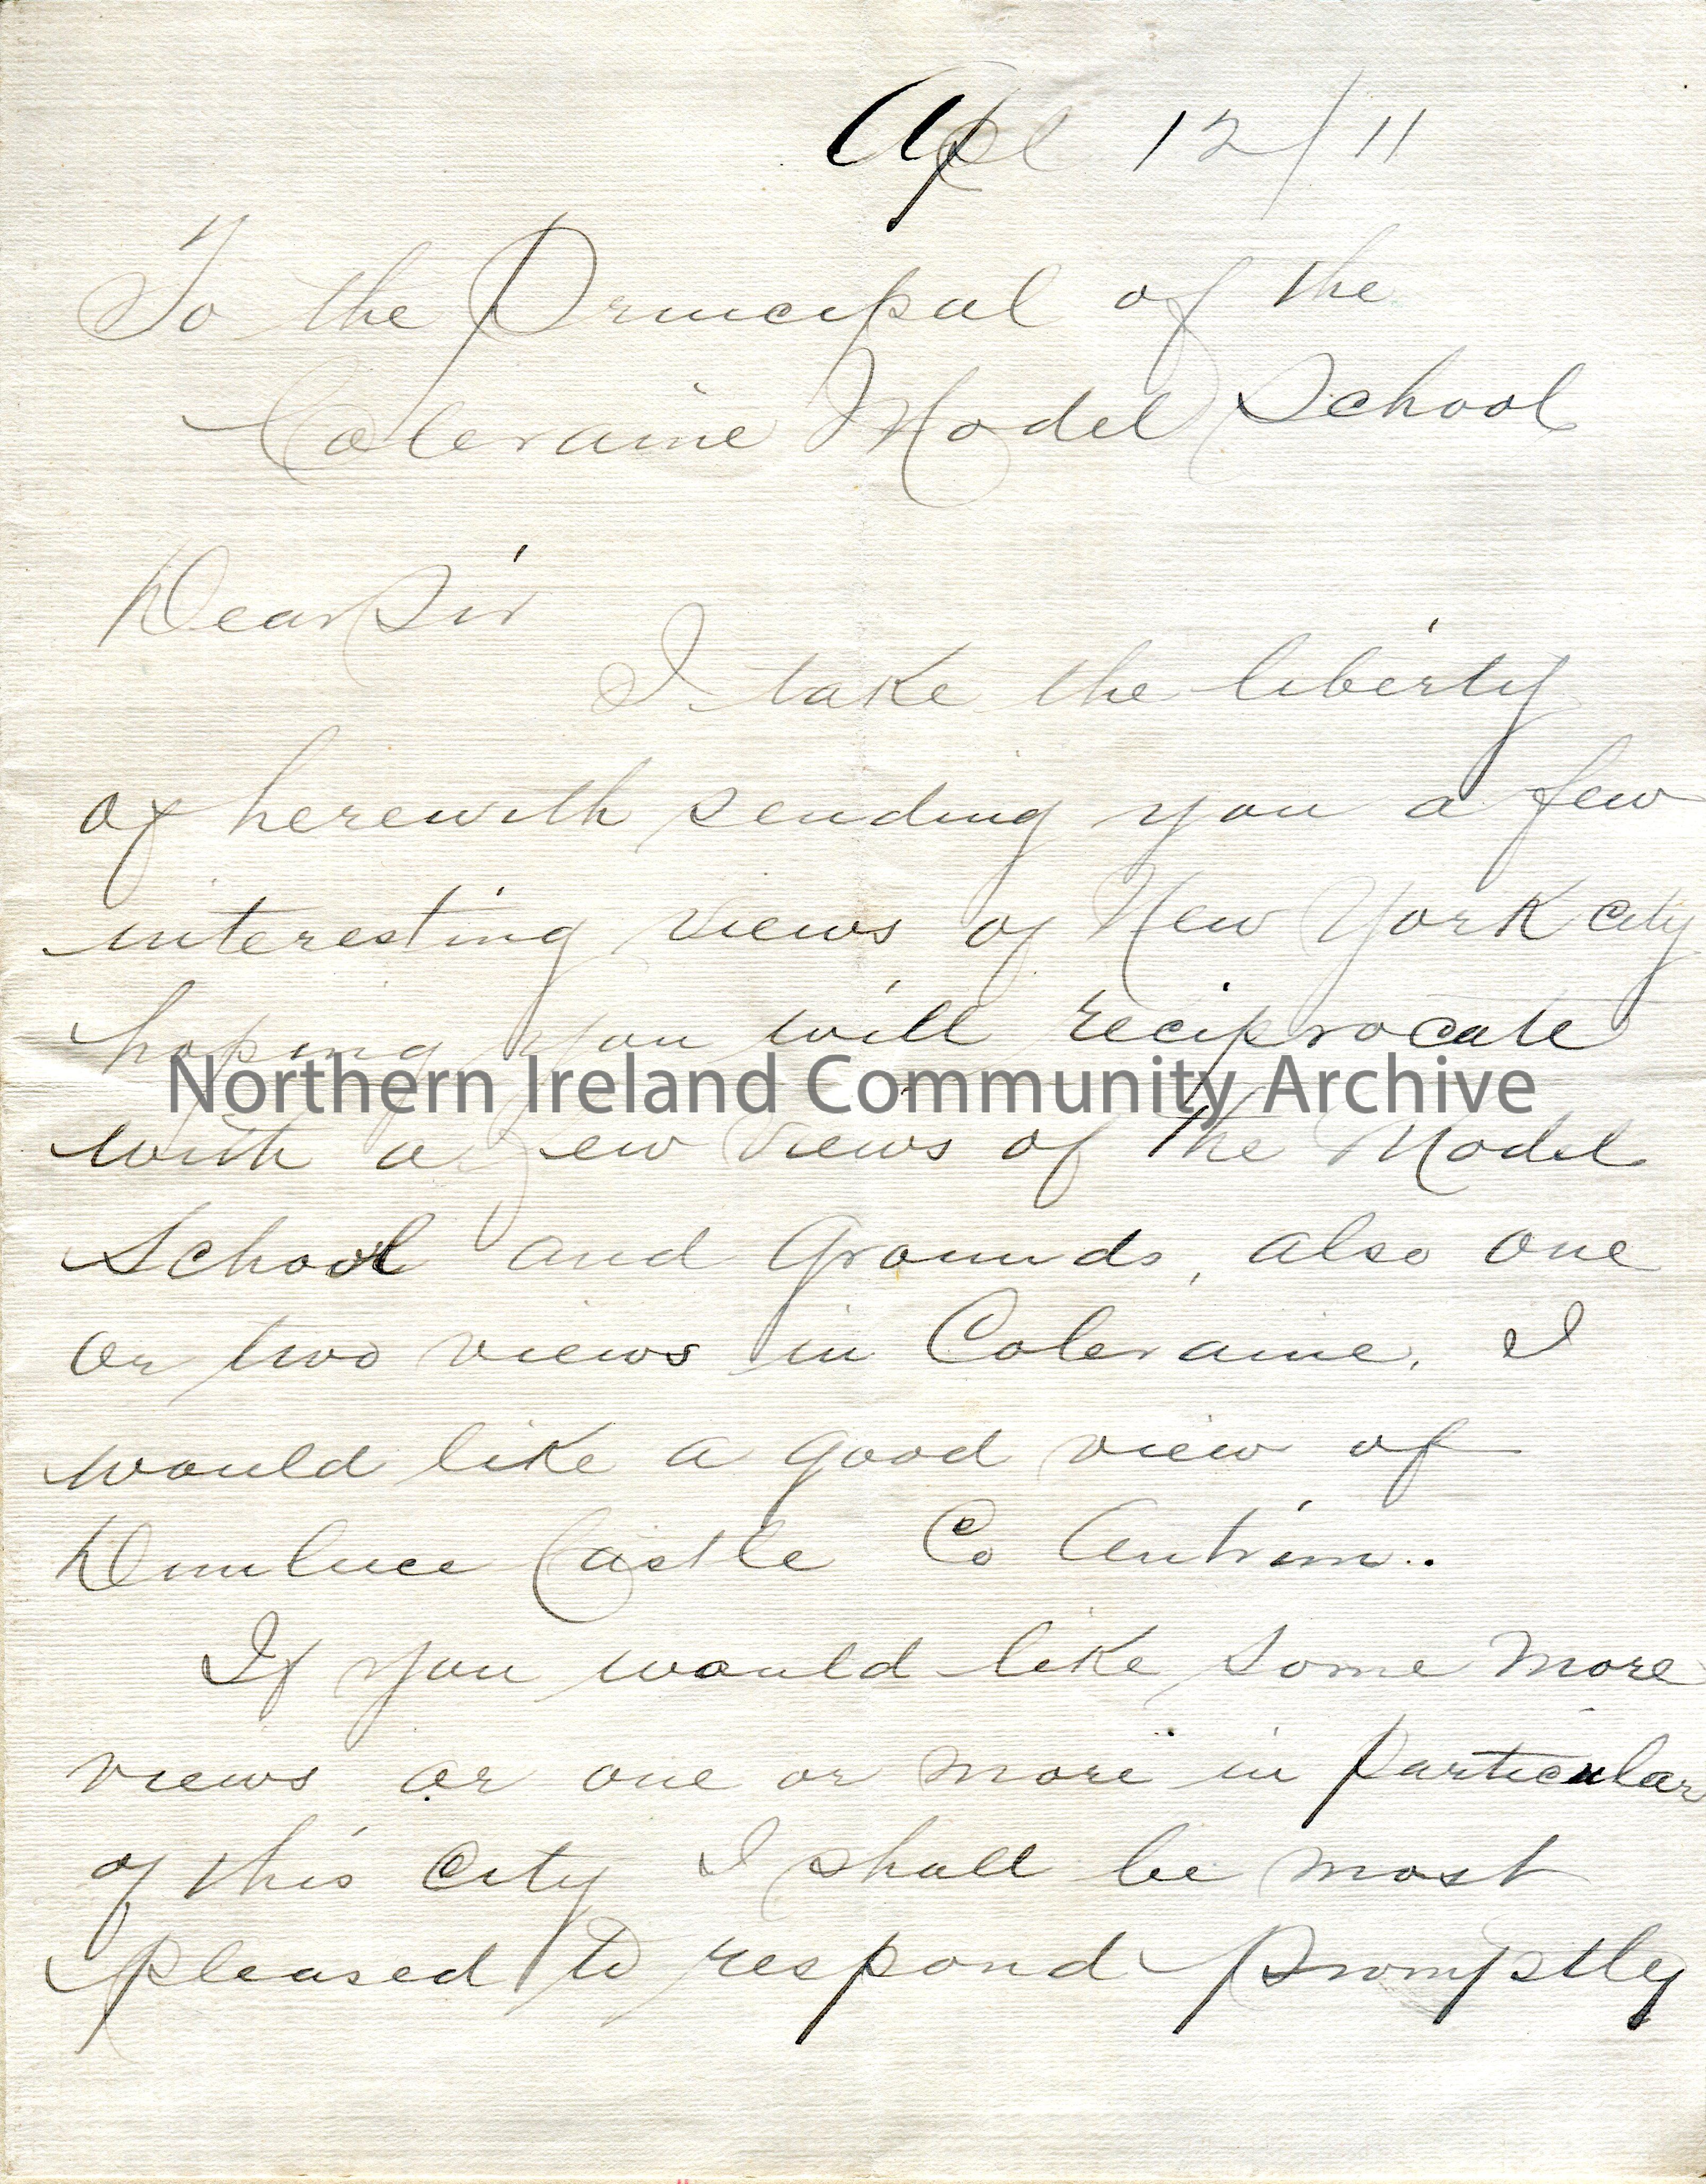 Apl 12/11
To the Principal of the
Coleraine Model School
Dear Sir
I take the liberty
of herewith sending you a few
interesting views of New York City
hoping you will reciprocate
Northern Ireland Community Archive
with a few views of the Model
School and Grounds, also one
or two views in Coleraine. I
would like a good view of
Dunluce Castle Co Antrim..
If you would like some more
views or one or more in particular
of this City I shall be most
pleased to respond promptly